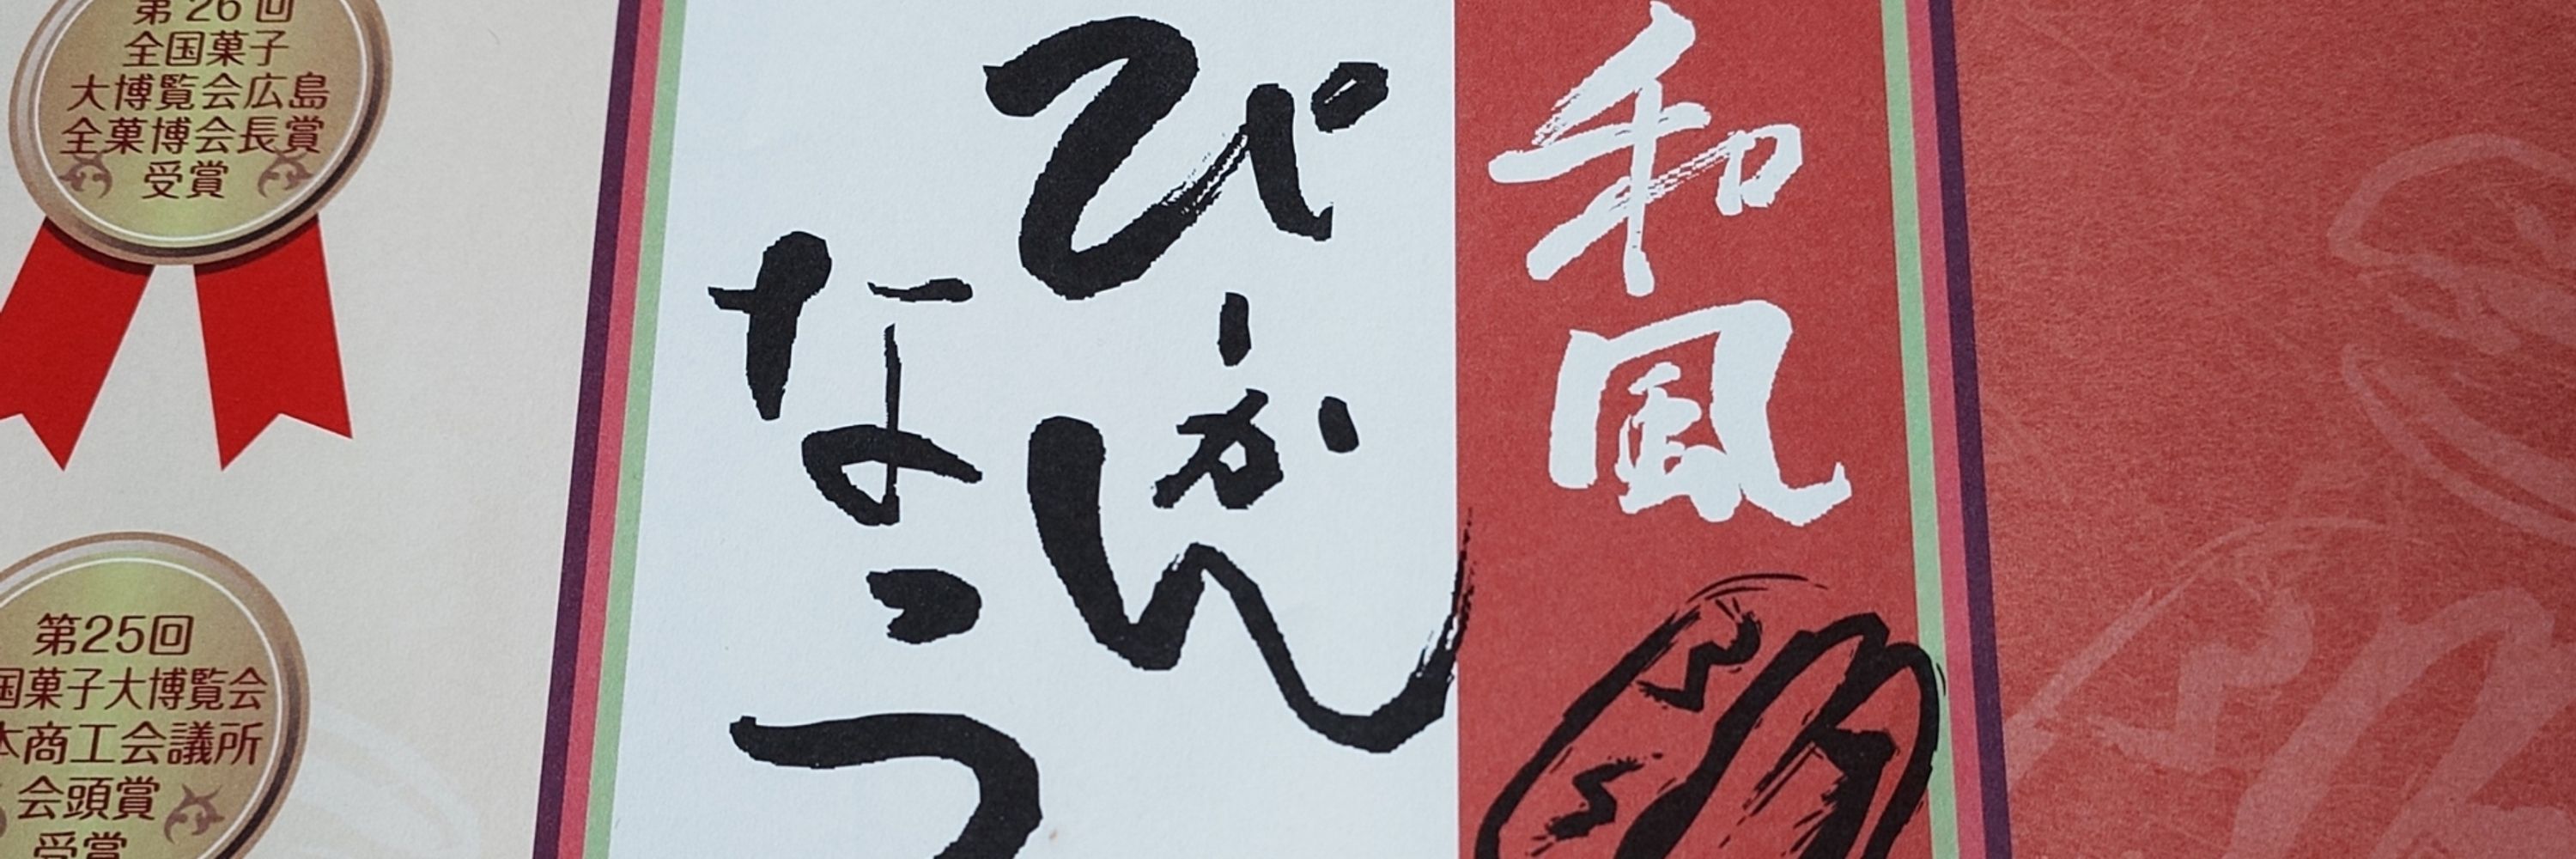 和風
ぴーかん
なっつ
第26回
全国菓子
大博覧会広島
全菓博会長賞
受賞
第25回
国菓子大博覧会
本商工会議所
会頭賞
受賞